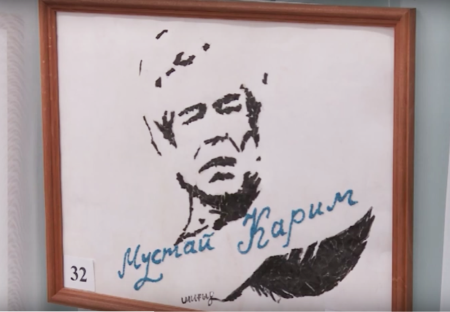 Мустай Карим
32